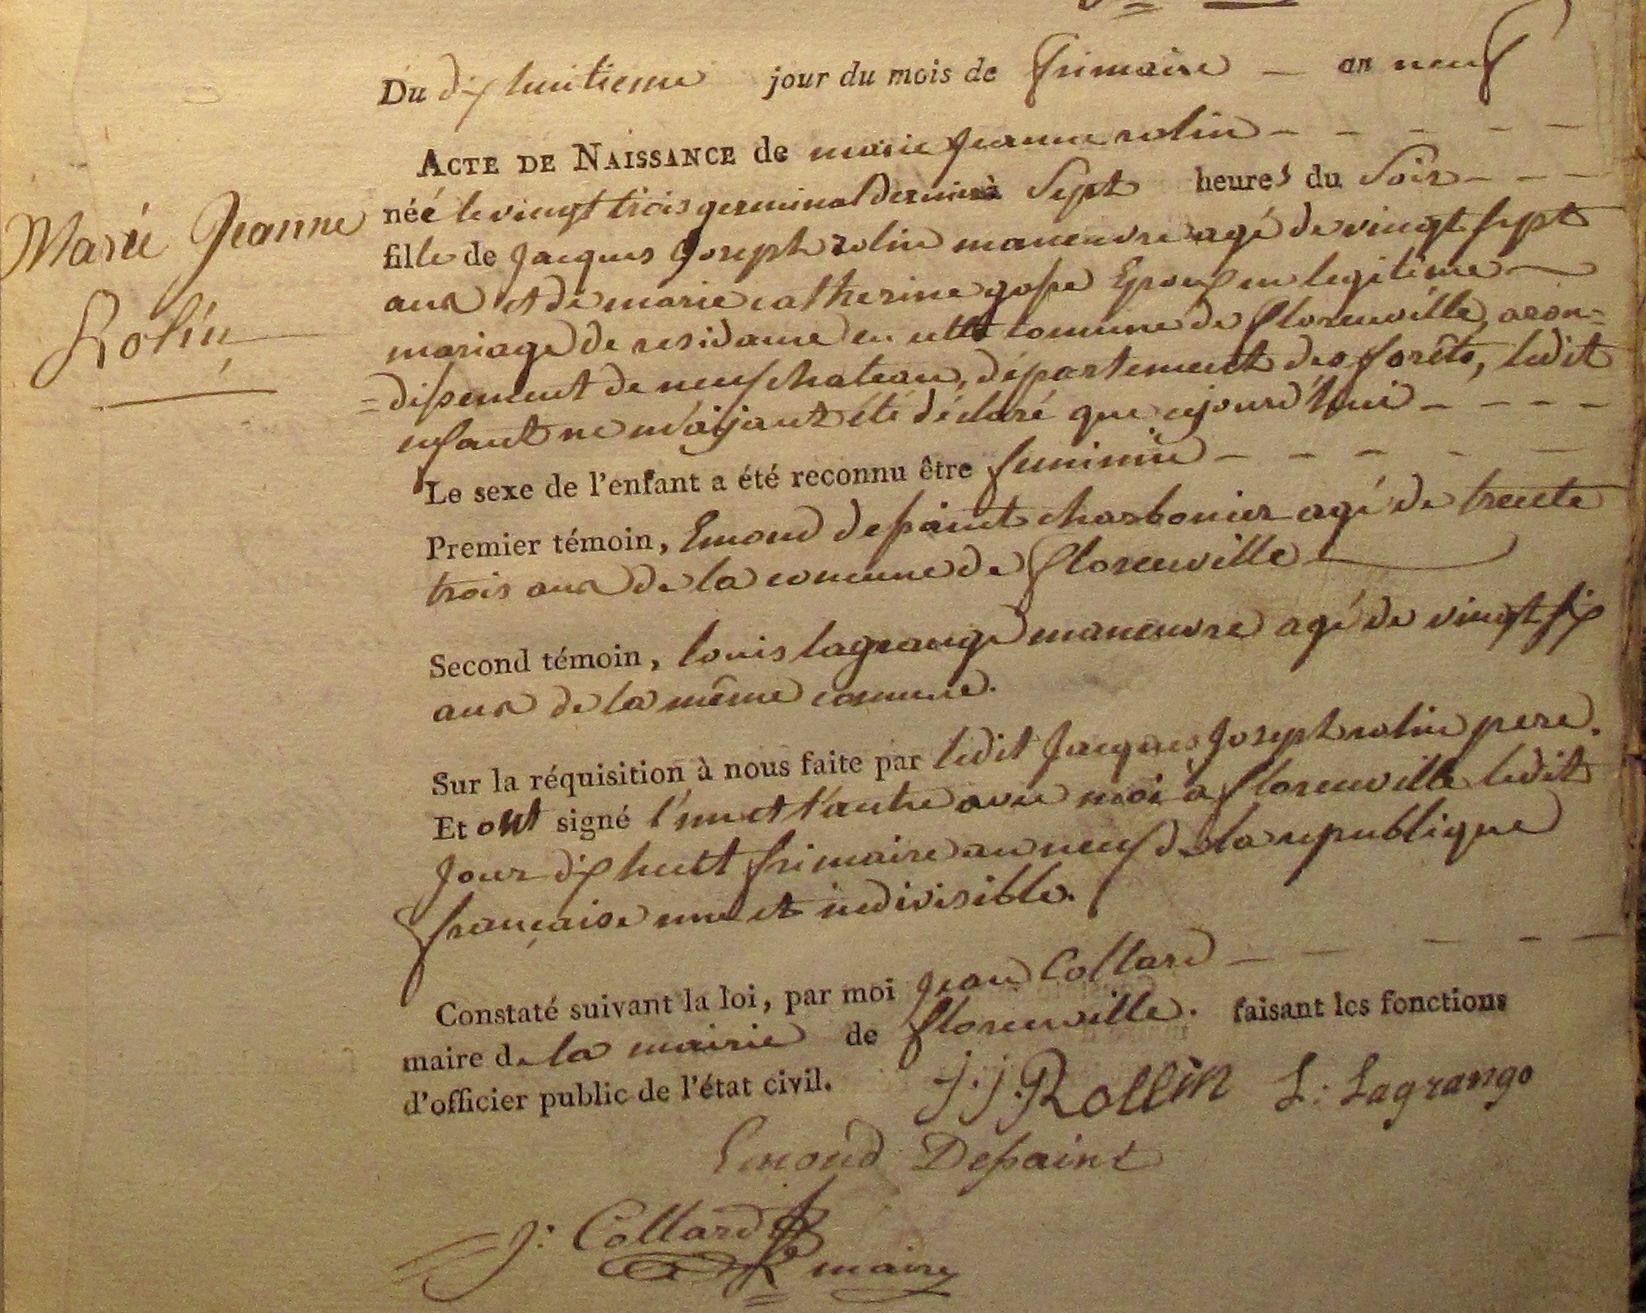 Du dix huitieme jour du mois de frimaire — an neuf
ACTE DE NAISSANCE de marie jeanne rolin - - - - -
Marie Jeanne
Rolin
néé le vingt trois germinal dernier à Sept heures du Soir - - -
fille de jacques joseph rolin maneuvre agé de vingt sept
ans et de marie catherine gosse Epoux en legitime
mariage de residance en cette commune de florenville, aron=
=dissement de neufchateau, département des forêts, ledit
enfant ne m'aÿant été déclaré que cejourd'huie - - - -
Le sexe de l'enfant a été reconnu être feminin - - - - -
Premier témoin, Emond depaint charbonier agé de trente
trois ans de la commune de florenville
Second témoin, louis lagrange maneuvre agé de vingt six
ans de la même commune.
Sur la réquisition à nous faite par ledit jacques joseph rolin pere.
Et ont signé l'un et l'autre avec moi a florenville ledit
jour dix huit frimaire an neuf de la republique
française une et indivisible.
Constaté suivant la loi, par moi jean Collard - - - - -
maire de la mairie de florenville. faisant les fonctions
d'officier public de l'état civil.
j. j. Rollin L: Lagrange
Emond Depaint
J: Collard
maire